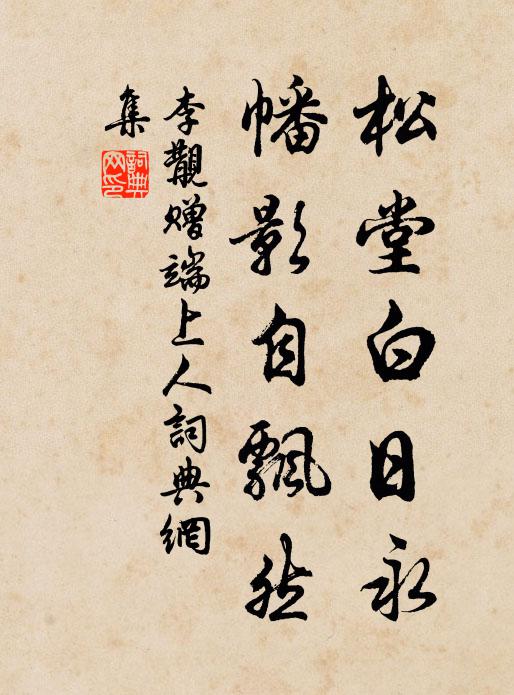 松堂白日永
幡影自飄然
李覯贈端上人詞典網
集
詞典网印